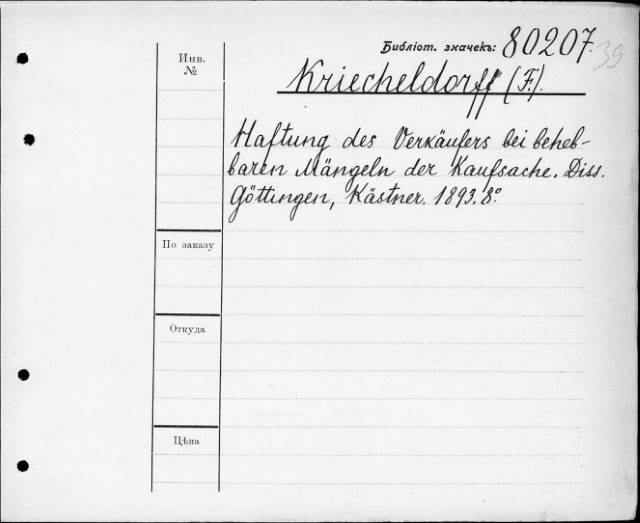 Библіот. значекъ: 80207.39
Инв.
№
Kriecheldorff (F.).
Haftung des Verkäufers bei beheb-
baren Mängeln der Kaufsache. Diss.
Göttingen, Kästner. 1893. 8°.
По заказу
Откуда
Цѣна